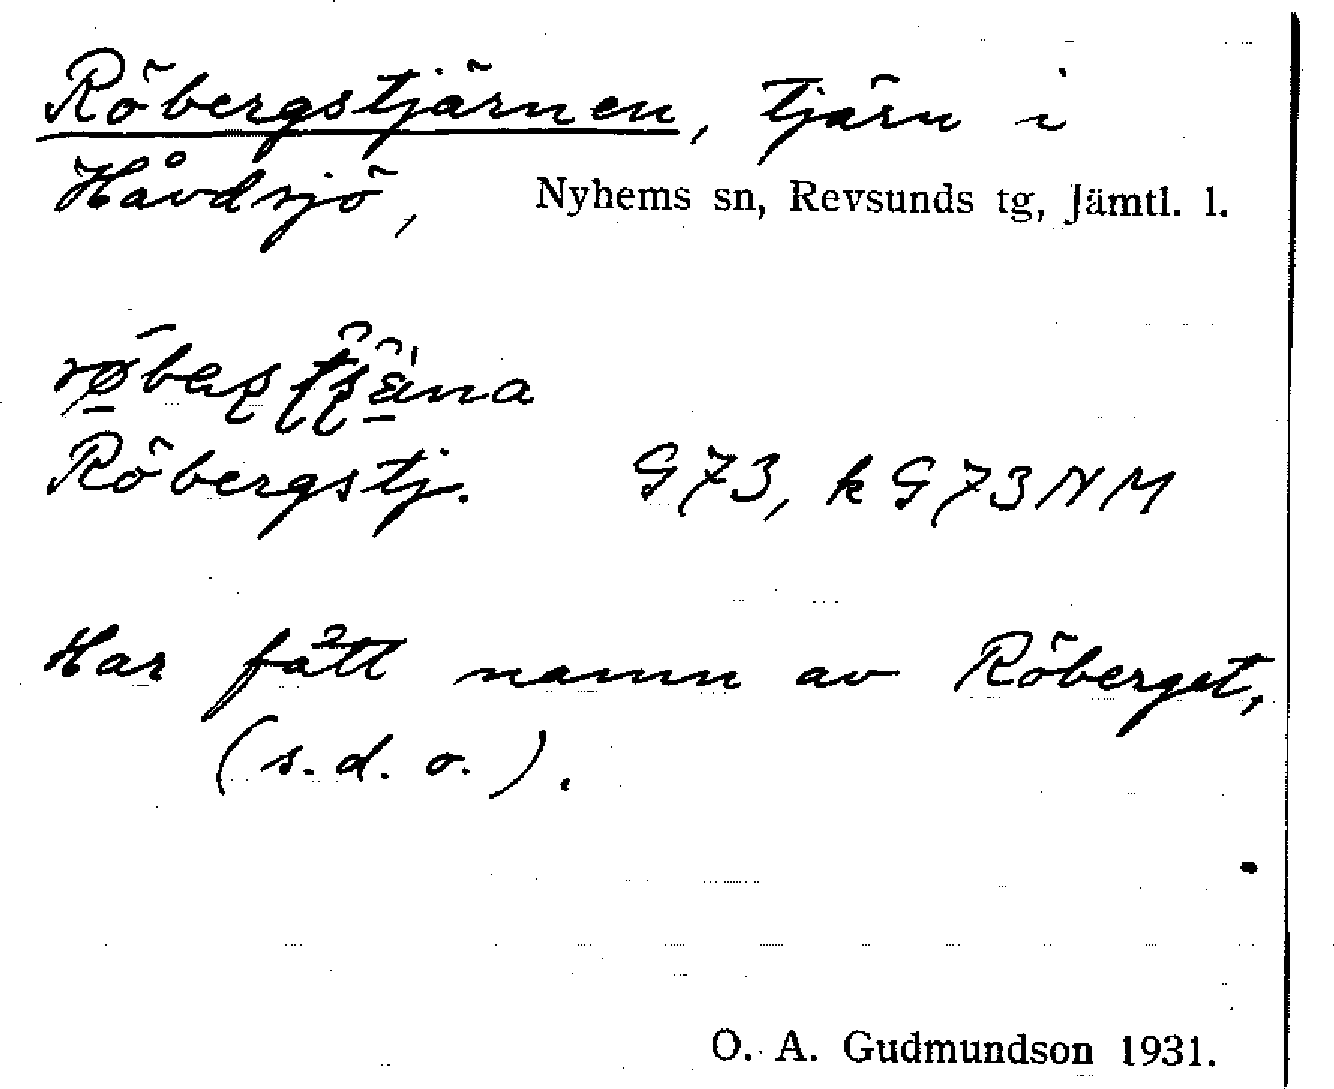 Röbergstjärnen, tjärn i
Håvdsjö, Nyhems sn, Revsunds tg, Jämtl. l.
Röbergstj. G73, k G73NM
Har fått namn av Röberget,
(s.d.o.).
O. A. Gudmundson 1931.